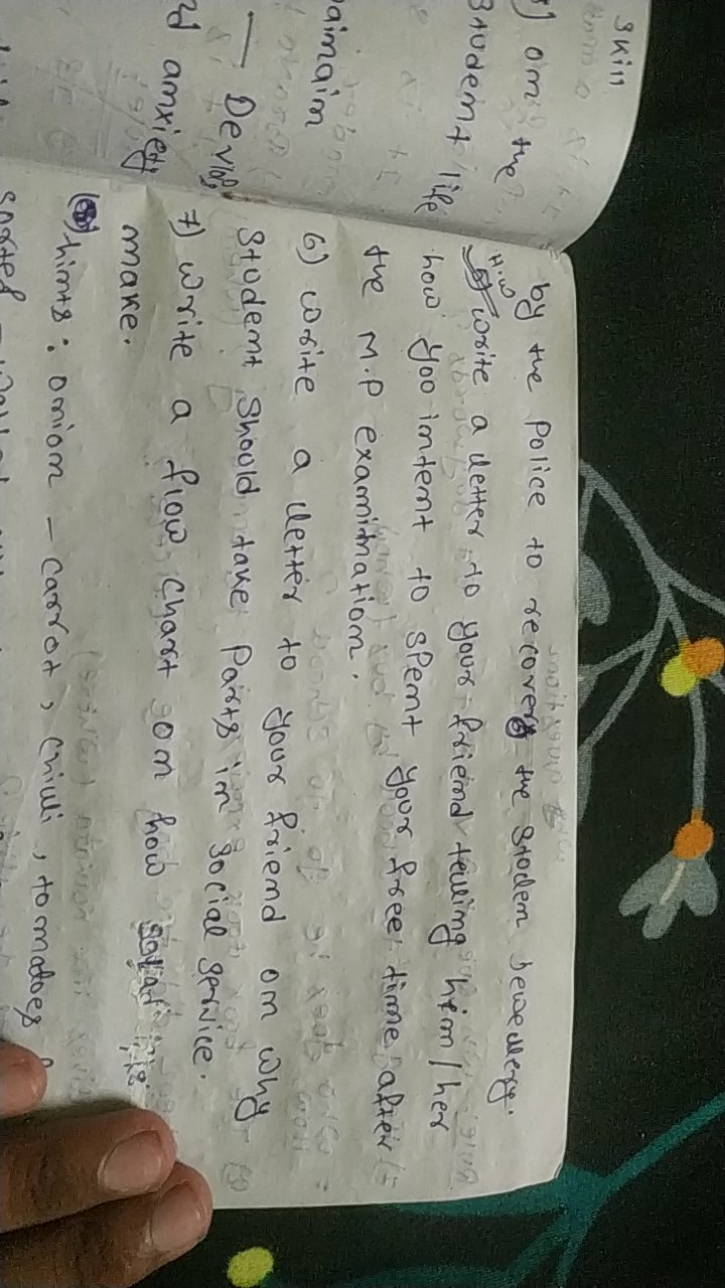 skin
on the
Student life
— Develop
d anxiety
by the police to recover the stolen jewellery.
H.W write a letter to your friend telling him/her
how you intent to spent your free time after
the M.P examitnation.
6) write a letter to your friend on why
student should take parts in social service.
7) write a flow chart on how salad is
make.
hints: onion - carrot, chilli, tomatoes
sorted - washed